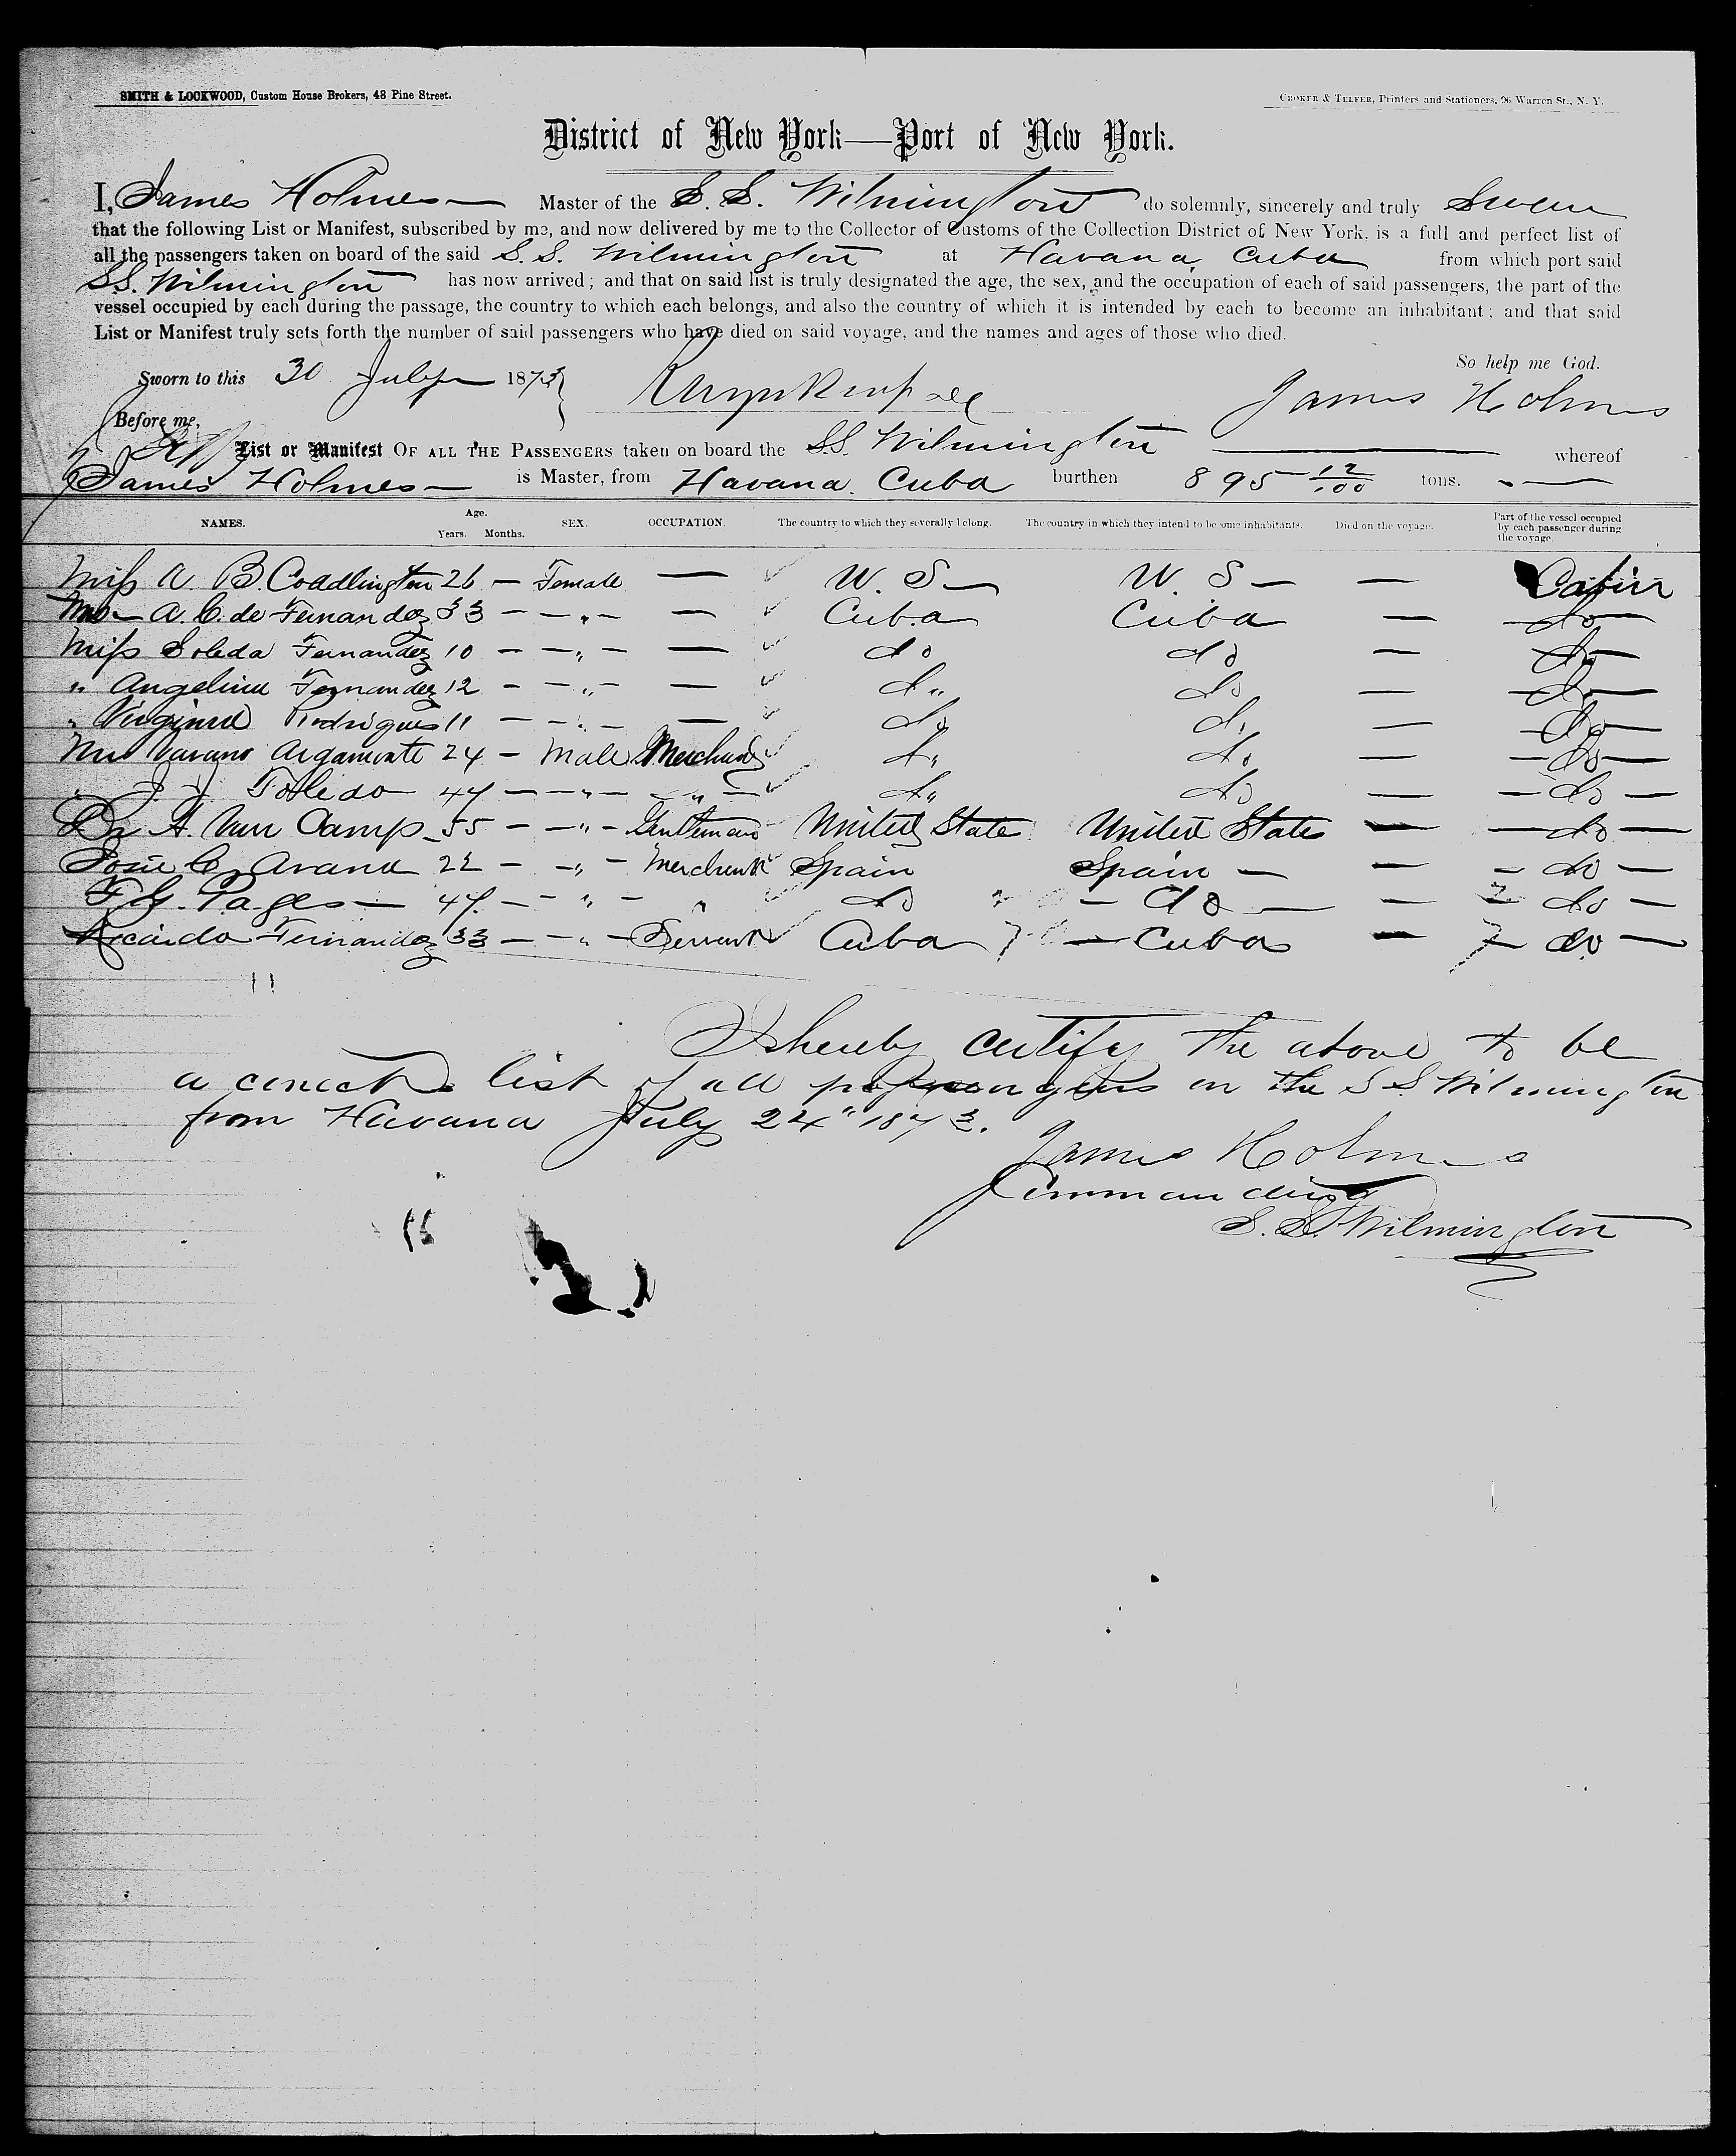 SMITH & LOCKWOOD, Custom House Brokers, 48 Pine Street.
CROKER & TELFER, Printers and Stationers, 96 Warren St., N. Y.
District of New York—Port of New York.
I, James Holmes — Master of the S. S. Wilmington do solemnly, sincerely and truly Swear
that the following List or Manifest, subscribed by me, and now delivered by me to the Collector of Customs of the Collection District of New York, is a full and perfect list of
all the passengers taken on board of the said S. S. Wilmington at Havana, Cuba from which port said
S.S. Wilmington has now arrived; and that on said list is truly designated the age, the sex, and the occupation of each of said passengers, the part of the
vessel occupied by each during the passage, the country to which each belongs, and also the country of which it is intended by each to become an inhabitant; and that said
List or Manifest truly sets forth the number of said passengers who have died on said voyage, and the names and ages of those who died.
So help me God.
Sworn to this 30 July 1873
James Holmes
Before me,
List or Manifest OF ALL THE PASSENGERS taken on board the S.S. Wilmington — whereof
James Holmes — is Master, from Havana. Cuba burthen 895 12/100 tons. —
NAMES. Age. Years. Months. SEX. OCCUPATION. The country to which they severally belong. The country in which they intend to become inhabitants. Died on the voyage. Part of the vessel occupied by each passenger during the voyage.
Miss A. B. Coddlington 26 — Female — U. S — U. S — — Cabin
Mrs A. C. de Fernandez 33 — — " — — Cuba Cuba — do
Miss Soleda Fernandez 10 — — " — — do do — do
" Angelina Fernandez 12 — — " — — do do — do
" Rodrigues 11 — — " — — do do — do
24 — Male Merchant do do — do
" J. J. Toledo 47 — — " — " — do do — do —
Dr A. Van Camp 55 — — " — Gentleman United State United States — — do —
José C. Arana 22 — — " — Merchant Spain Spain — — do —
F. G. Pages — 47 — — " — " do — do — — do —
Ricardo Fernandez 33 — — " — Servant Cuba — Cuba — do —
11
I hereby certify the above to be
a correct list of all passengers on the S S. Wilmington
from Havana July 24" 1873.
James Holmes
Commanding
S. S. Wilmington